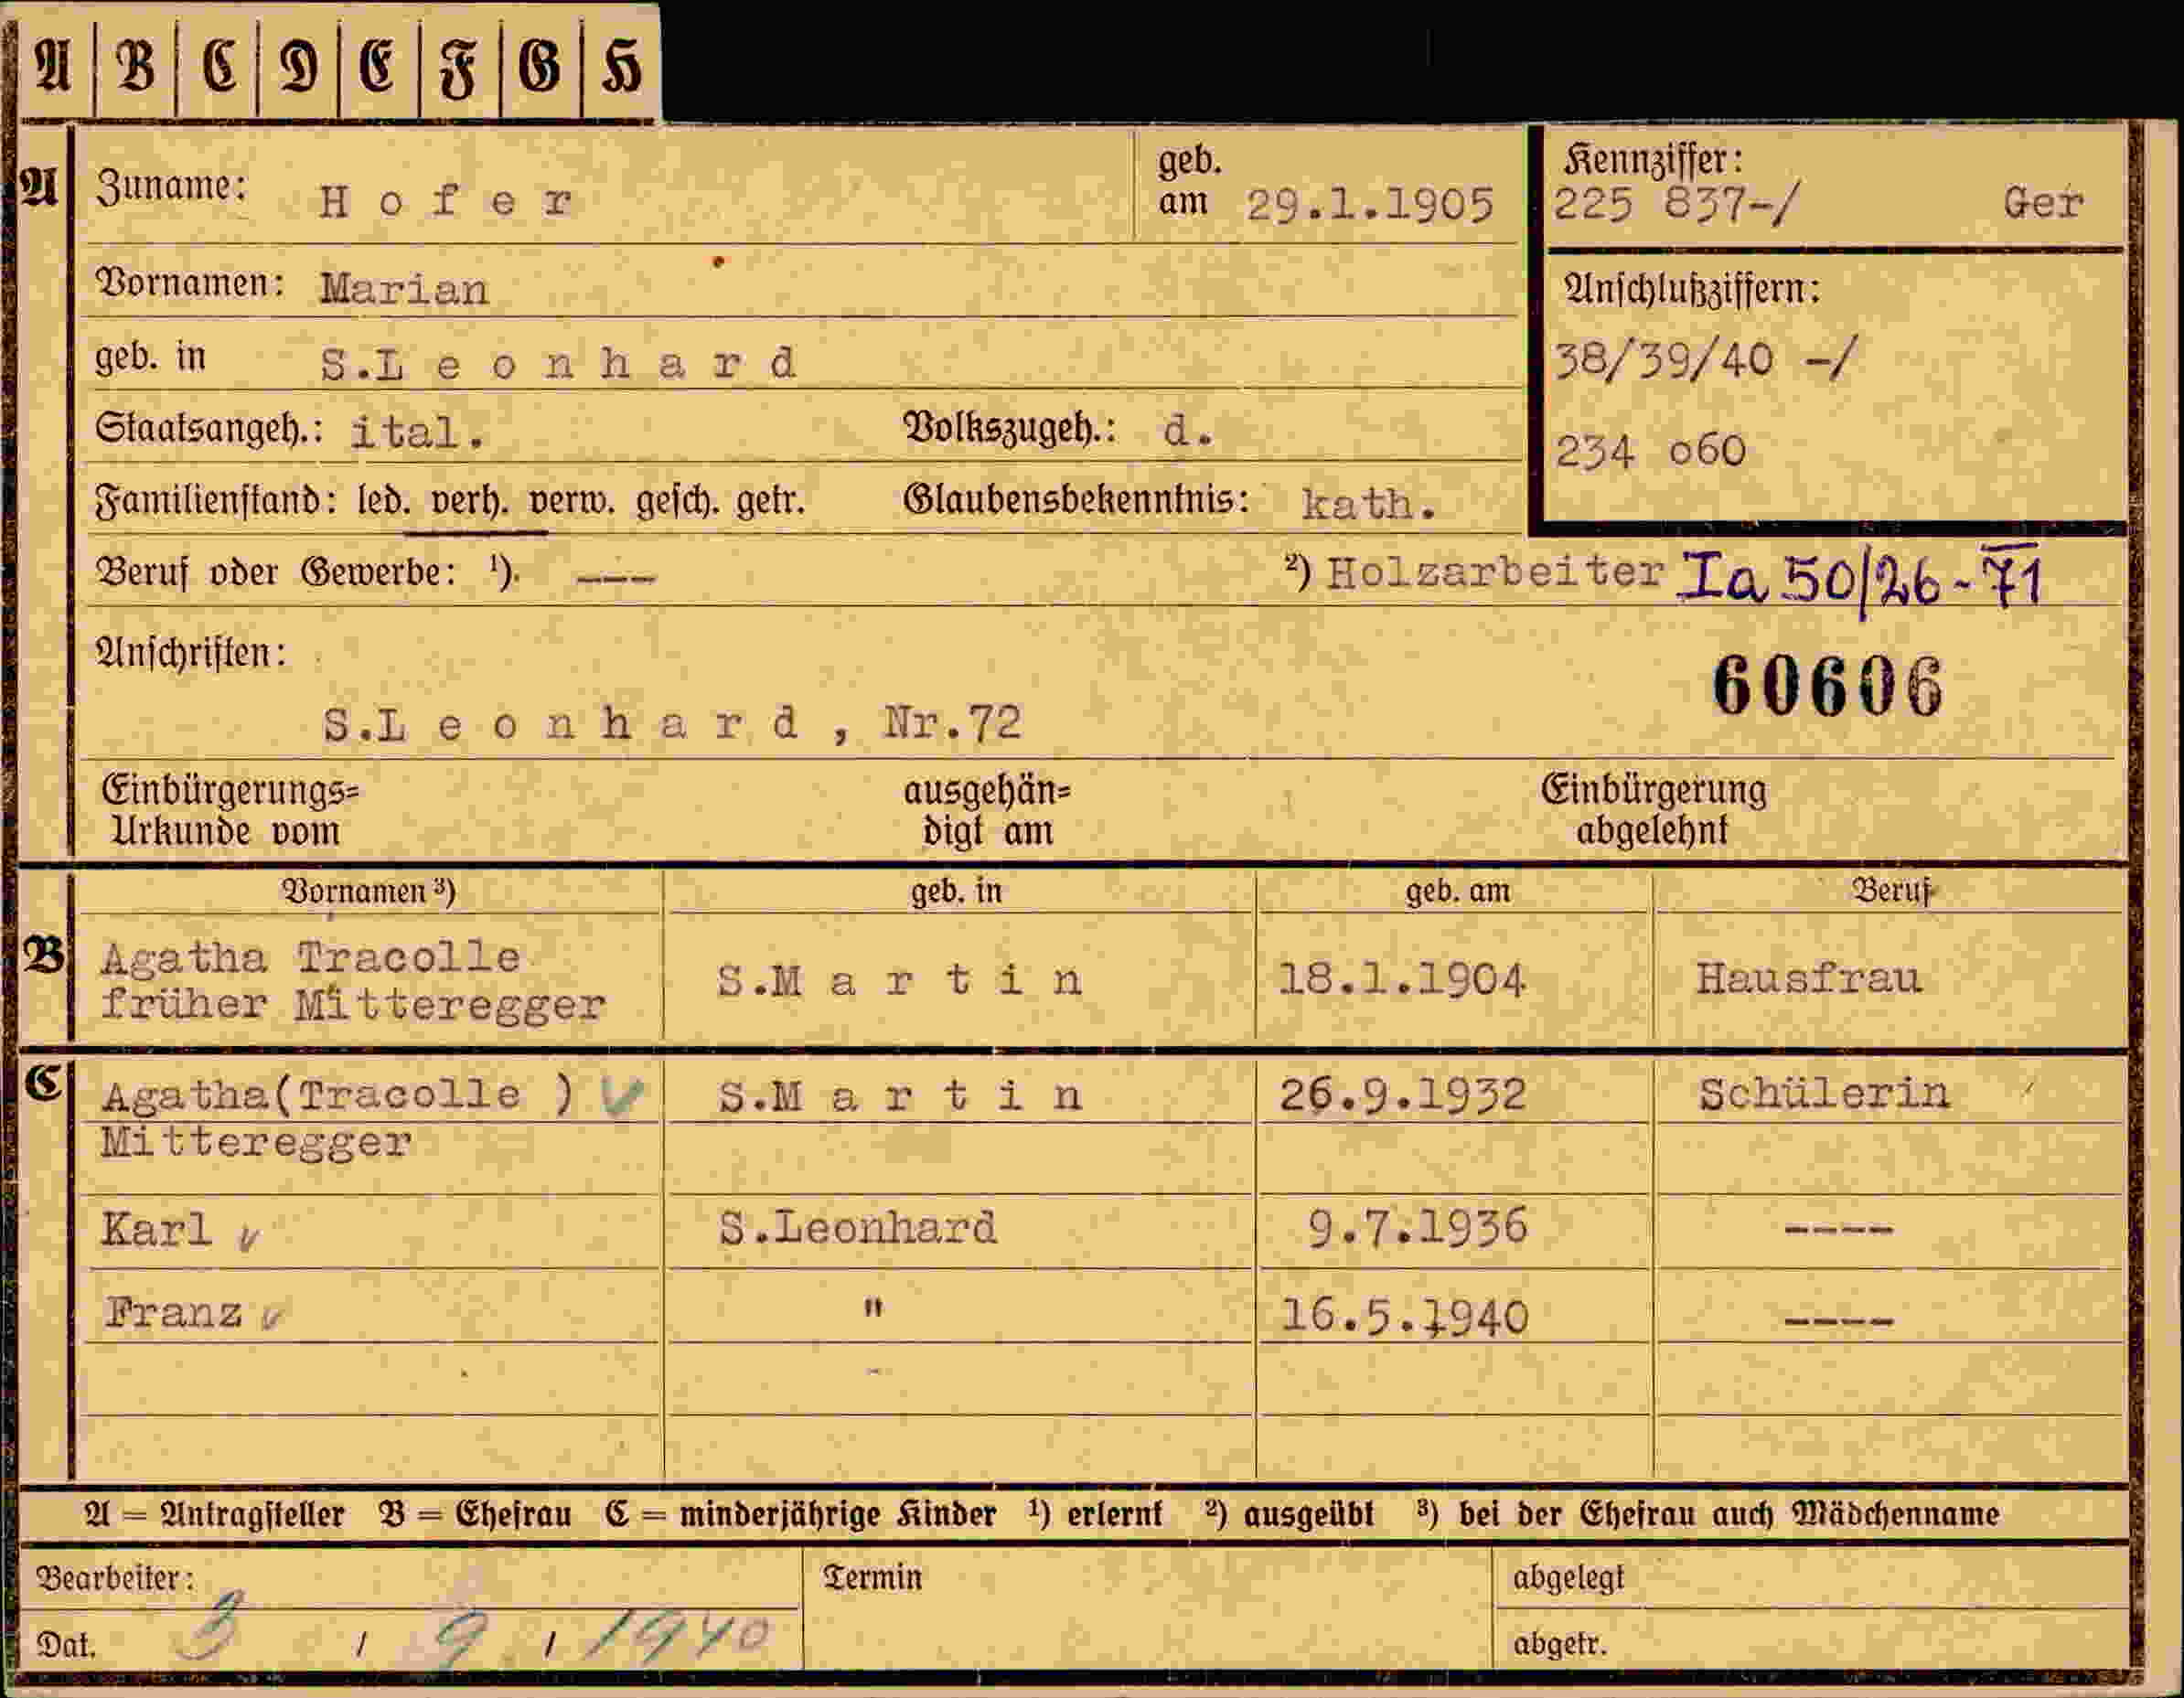 A B C D E F G H
A Zuname: Hofer geb. am 29.1.1905 Kennziffer: 225 837-/ Ger
Vornamen: Marian Anschlußziffern:
geb. in S.Leonhard 38/39/40 -/
Staatsangeh.: ital. Volkszugeh.: d. 234 o60
Familienstand: led. verh. verw. gesch. getr. Glaubensbekenntnis: kath.
Beruf oder Gewerbe: ¹) --- ²) Holzarbeiter Ia 50/26-71
Anschriften: 60606
S.Leonhard, Nr.72
Einbürgerungs= ausgehän= Einbürgerung
Urkunde vom digt am abgelehnt
Vornamen ³) geb. in geb. am Beruf
B Agatha Tracolle S.Martin 18.1.1904 Hausfrau
früher Mitteregger
C Agatha(Tracolle ) S.Martin 26.9.1932 Schülerin
Mitteregger
Karl S.Leonhard 9.7.1936 ----
Franz " 16.5.1940 ----
A = Antragsteller B = Ehefrau C = minderjährige Kinder ¹) erlernt ²) ausgeübt ³) bei der Ehefrau auch Mädchenname
Bearbeiter: Termin abgelegt
Dat. 3 / 9 / 1940 abgetr.